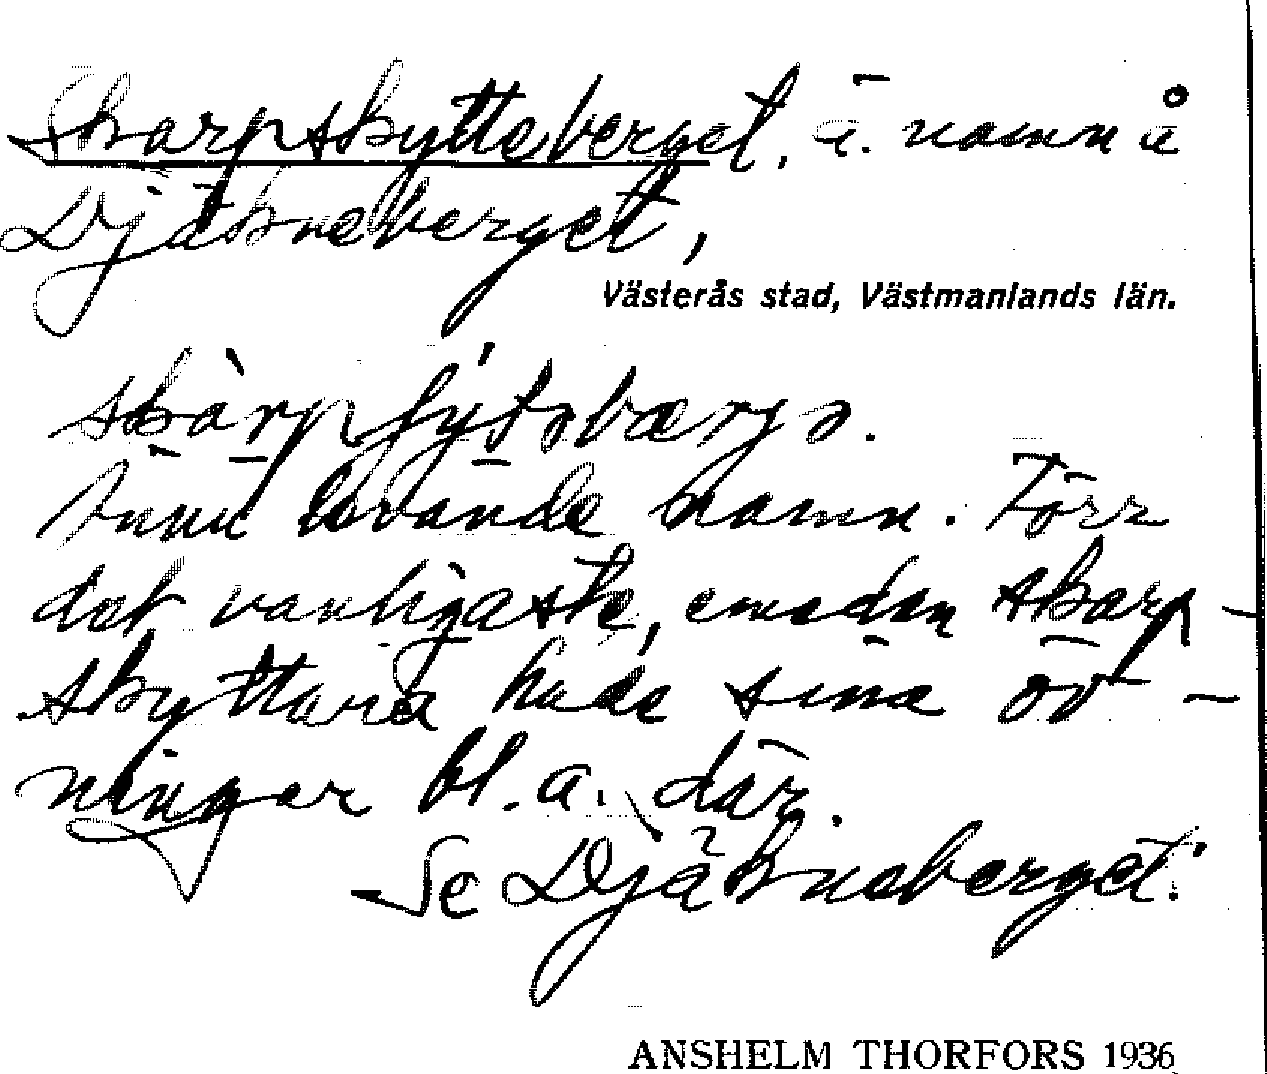 Skarpskytteberget, ä. namn å
Djäkneberget,
Västerås stad, Västmanlands län.
Ännu levande namn. Förr
det vanligaste, emedan skarp-
skyttarna hade sina öv-
ningar bl. a. där.
Se Djäkneberget.
ANSHELM THORFORS 1936